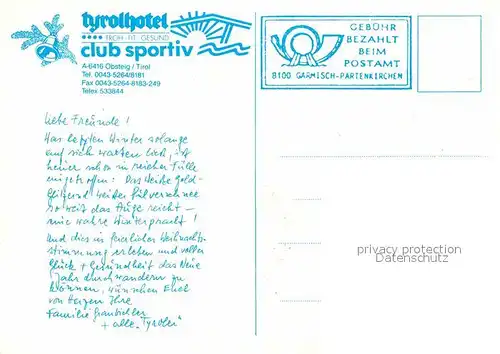 tyrolhotel
FROH · FIT · GESUND
club sportiv
A-6416 Obsteig / Tirol
Tel. 0043-5264/8181
Fax 0043-5264-8183-249
Telex 533844
GEBÜHR
BEZAHLT
BEIM
POSTAMT
8100 GARMISCH-PARTENKIRCHEN
Liebe Freunde!
Was letzten Winter solange
auf sich warten ließ, ist
heuer schon in reicher Fülle
eingetroffen: Das Weiße Gold-
Glitzernd weißer Pulverschnee
so weit das Auge reicht –
eine wahre Winterpracht!
Und dies in feierlicher Weihnachts-
stimmung erleben und voller
Glück + Gesundheit das Neue
Jahr durchwandern zu
können, wünschen Euch
von Herzen Ihre
Familie
+ alle "Tyroler"
privacy protection
Datenschutz